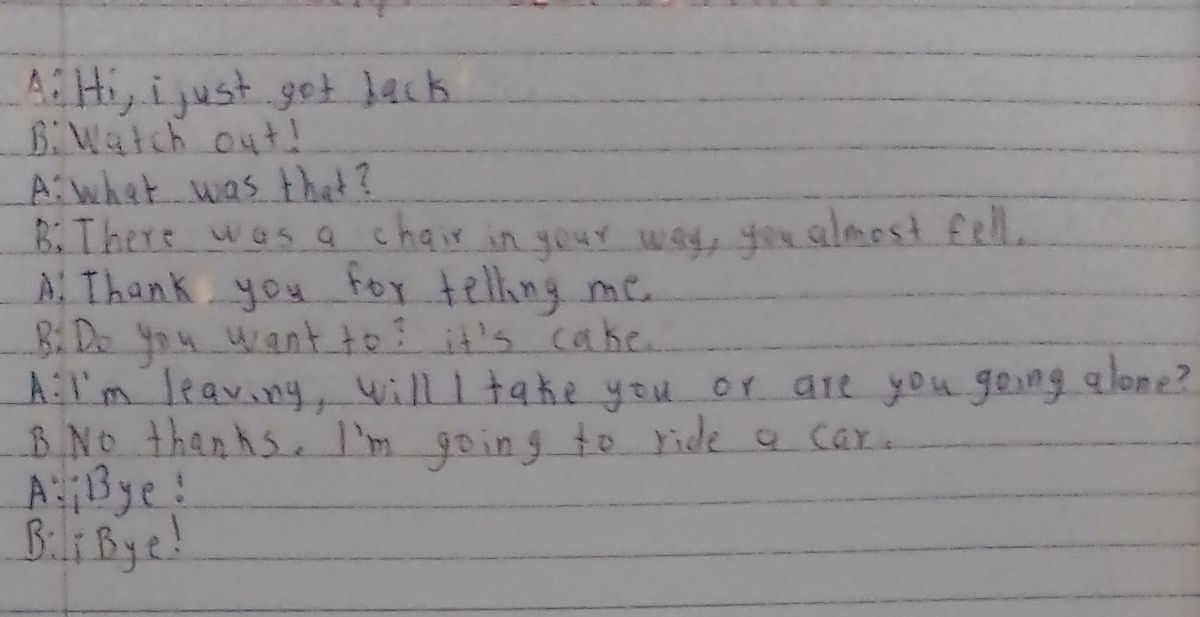 A: Hi, i just got back
B: Watch out!
A: What was that?
B: There was a chair in your way, you almost fell.
A: Thank you for tellıng me.
B: Do you want to? it's cake.
A: I'm leaving, will I take you or are you going alone?
B No thanks. I'm going to ride a car.
A: ¡Bye!
B: ¡Bye!